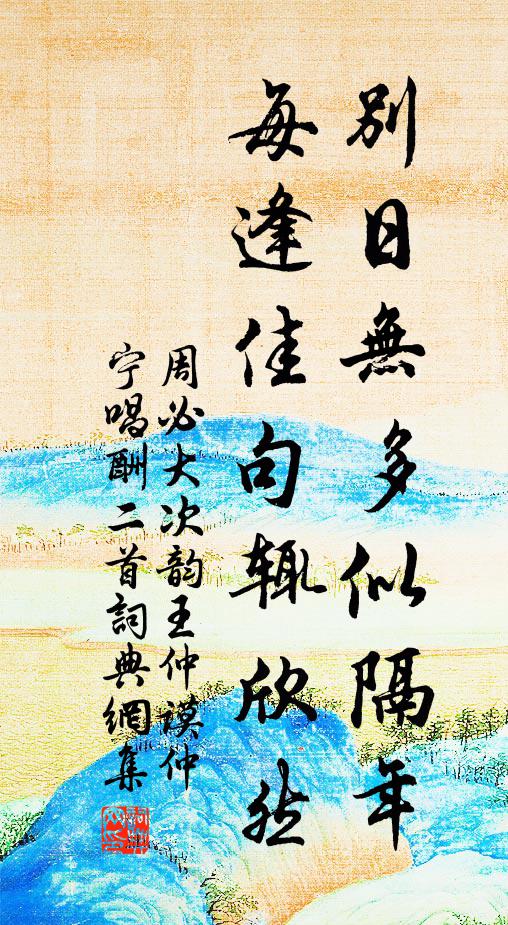 別日無多似隔年
每逢佳句輒欣然
周必大次韵王仲謨仲
宁唱酬二首詞典網集